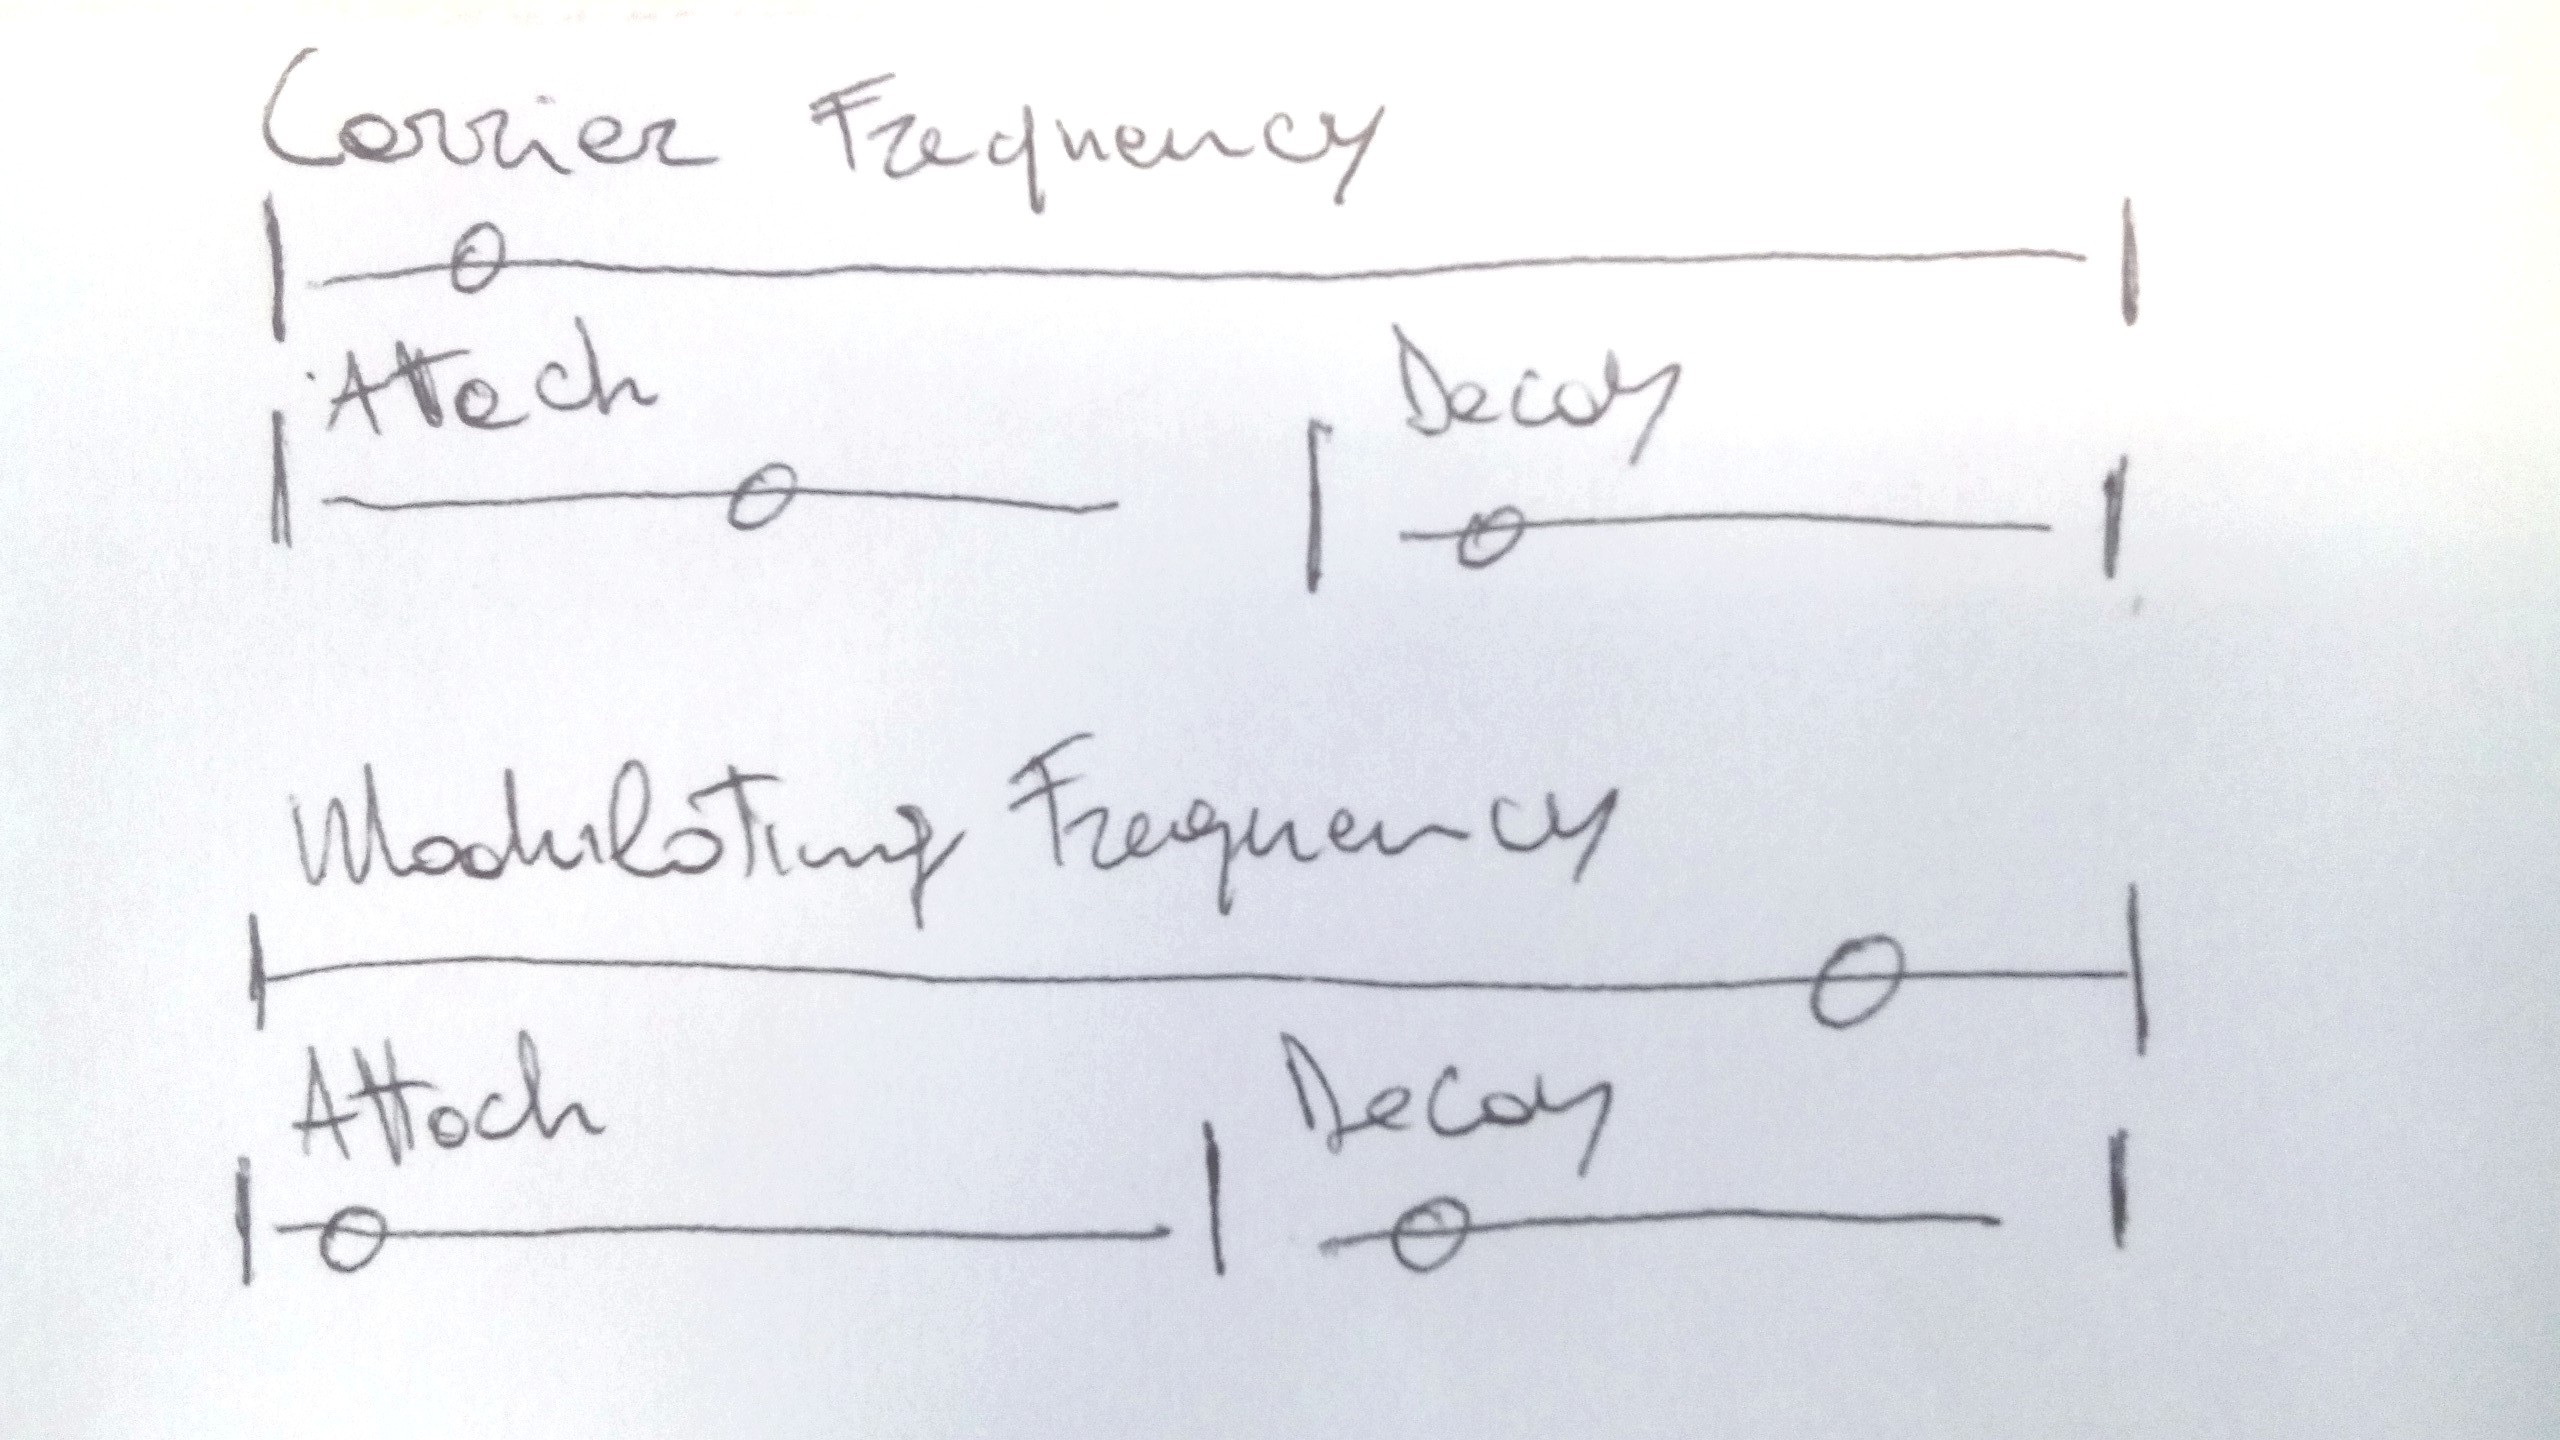 Carrier Frequency
Attack Decay
Modulating Frequency
Attack Decay